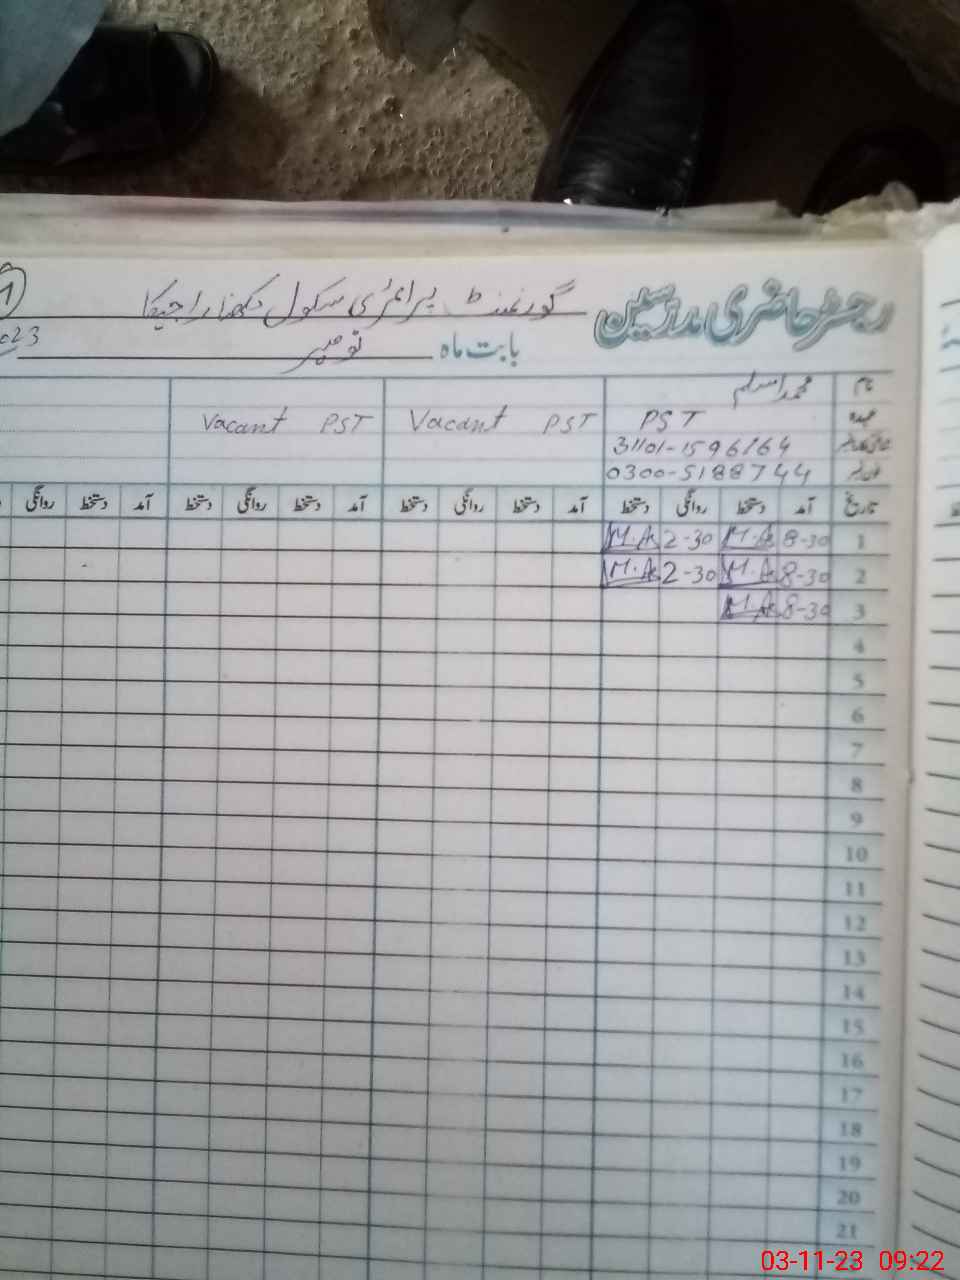 رجسٹر حاضری مدرسین گورنمنٹ پرائمری سکول
بابت ماہ نومبر
نام محمد اسلم
عہدہ PST Vacant PST Vacant PST
31101-1596164
0300-5188744
تاریخ آمد دستخط روانگی دستخط آمد دستخط روانگی دستخط آمد دستخط روانگی دستخط آمد دستخط روانگی
1 8-30 M.As 2-30 M.As
2 8-30 M.As 2-30 M.As
3 8-30 M.As
4
5
6
7
8
9
10
11
12
13
14
15
16
17
18
19
20
21
03-11-23 09:22